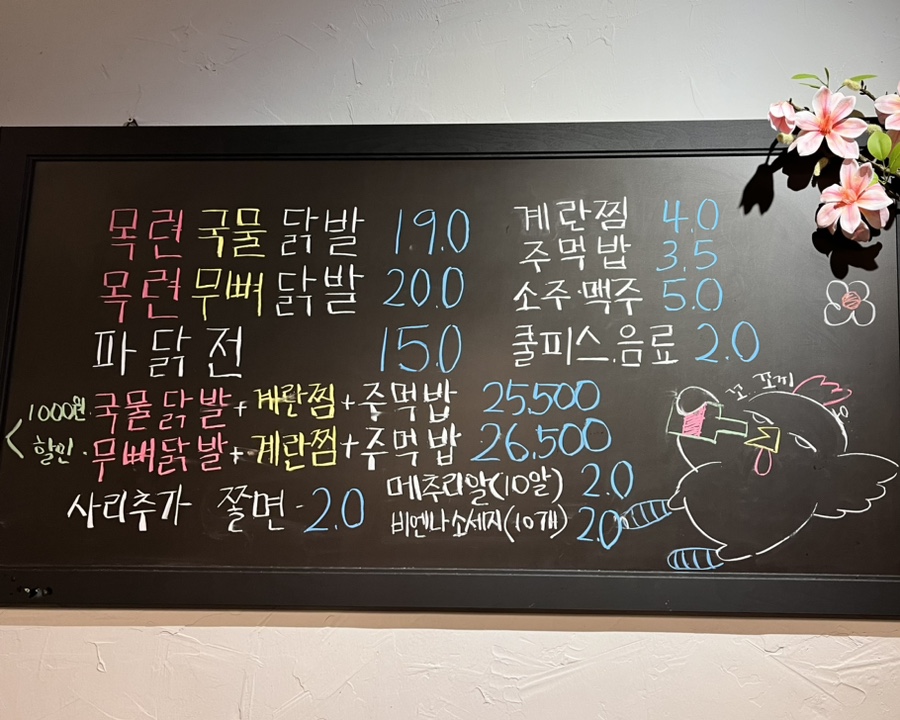 목련 국물 닭발 19.0
목련 무뼈 닭발 20.0
파 닭 전 15.0
계란찜 4.0
주먹밥 3.5
소주·맥주 5.0
쿨피스.음료 2.0
1000원 할인
국물닭발+계란찜+주먹밥 25,500
무뼈닭발+계란찜+주먹밥 26,500
사리추가 쫄면-2.0
메추리알(10알) 2.0
비엔나소세지(10개) 2.0
꼬.꼬끼